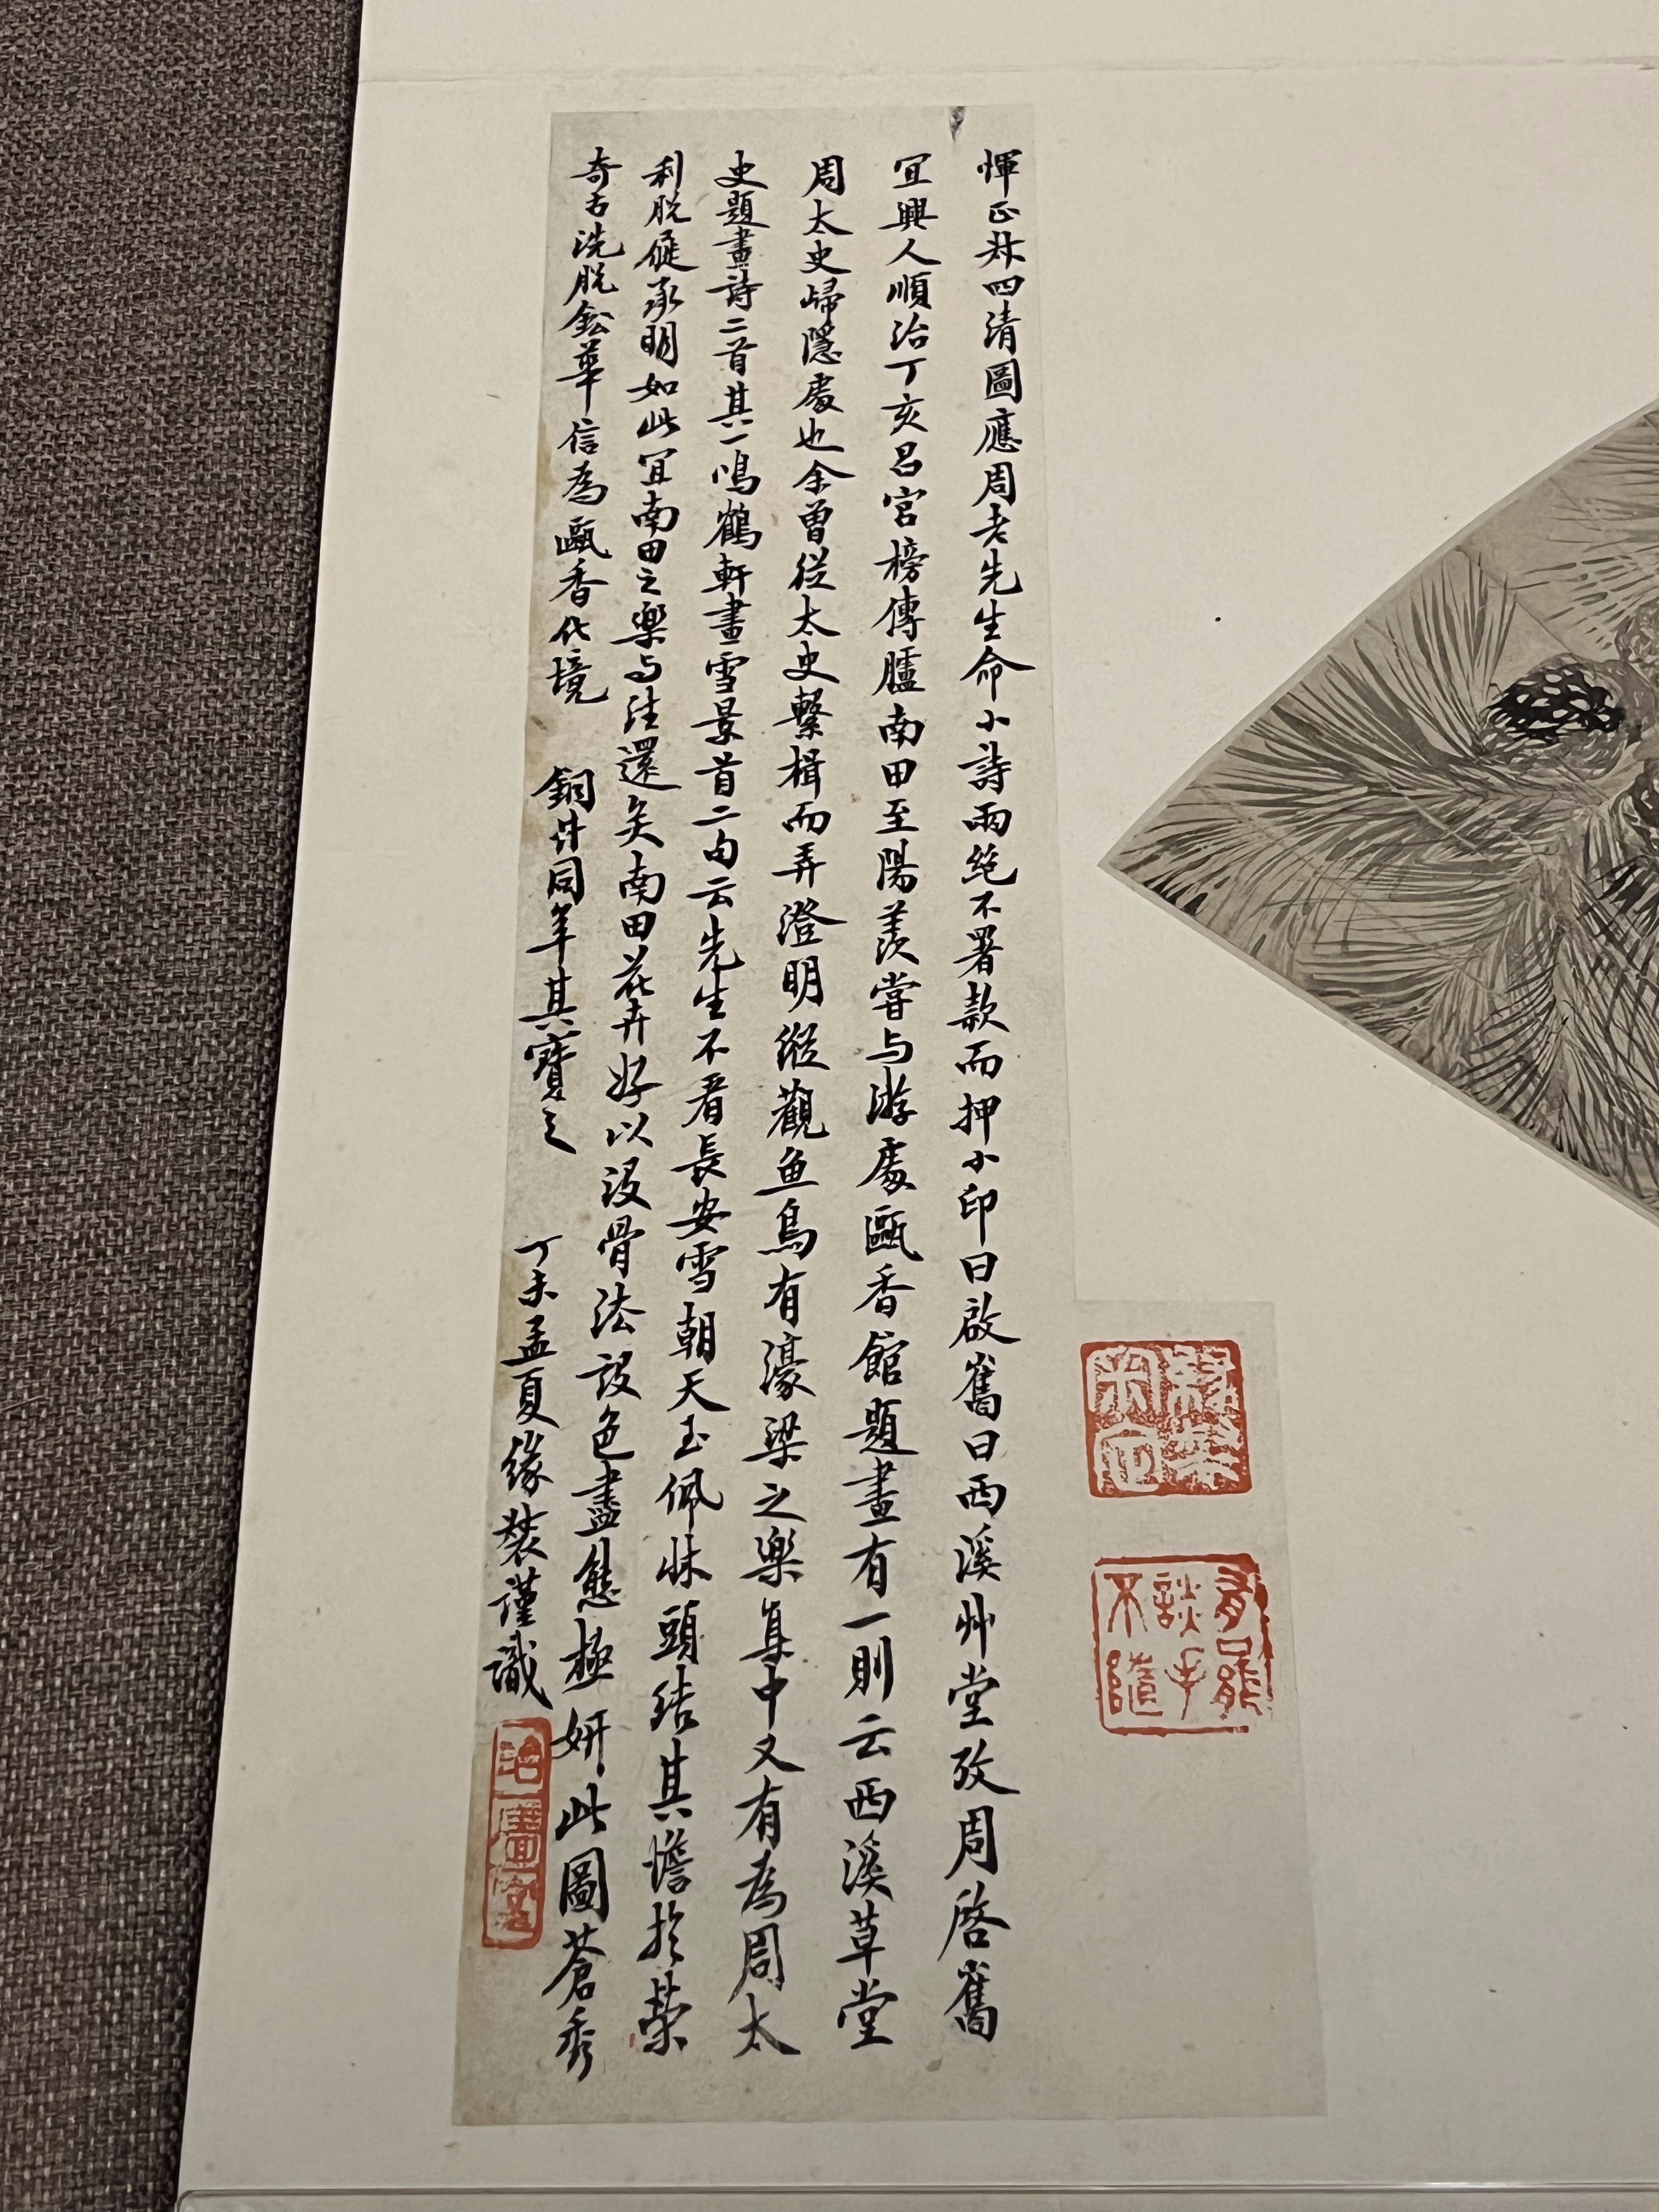 惲正叔四清圖應周老先生命小詩兩絕不署款而押小印曰啟巂曰西溪艸堂攷周啓巂
宜興人順治丁亥呂宮榜傳臚南田至陽羨嘗与游處甌香館題畫有一則云西溪草堂
周太史歸隱處也余曾從太史繫楫而弄澄明縱觀鱼鳥有濠梁之樂集中又有為周太
史題畫詩二首其一鳴鶴軒畫雪景首二句云先生不看長安雪朝天玉佩牀頭結其憺於榮
利脫屣承明如此宜南田之樂与往還矣南田花卉好以沒骨法設色盡態極妍此圖蒼秀
奇古洗脫鉛華信為甌香化境 銅井同年其寶之 丁未孟夏緣裝謹識